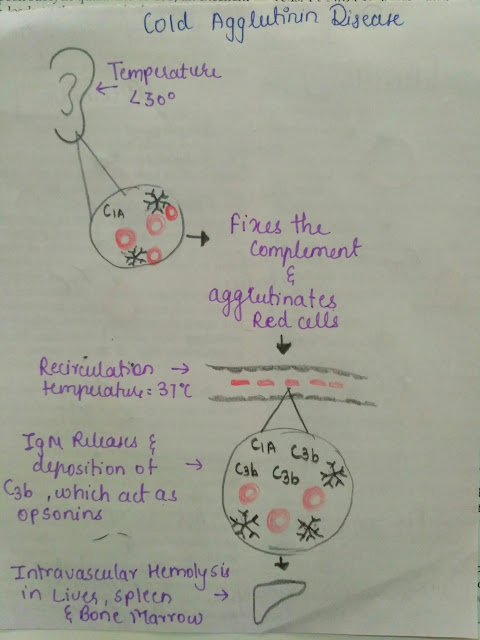 Cold Agglutinin Disease
Temperature
<30°
C1A
Fixes the
Complement
&
agglutinates
Red cells
Recirculation →
temperature: 37°C
IgM Releases &
deposition of
C3b, which act as
opsonins
C1A
C3b
C3b
C3b
Intravascular Hemolysis
in Liver, Spleen
& Bone Marrow